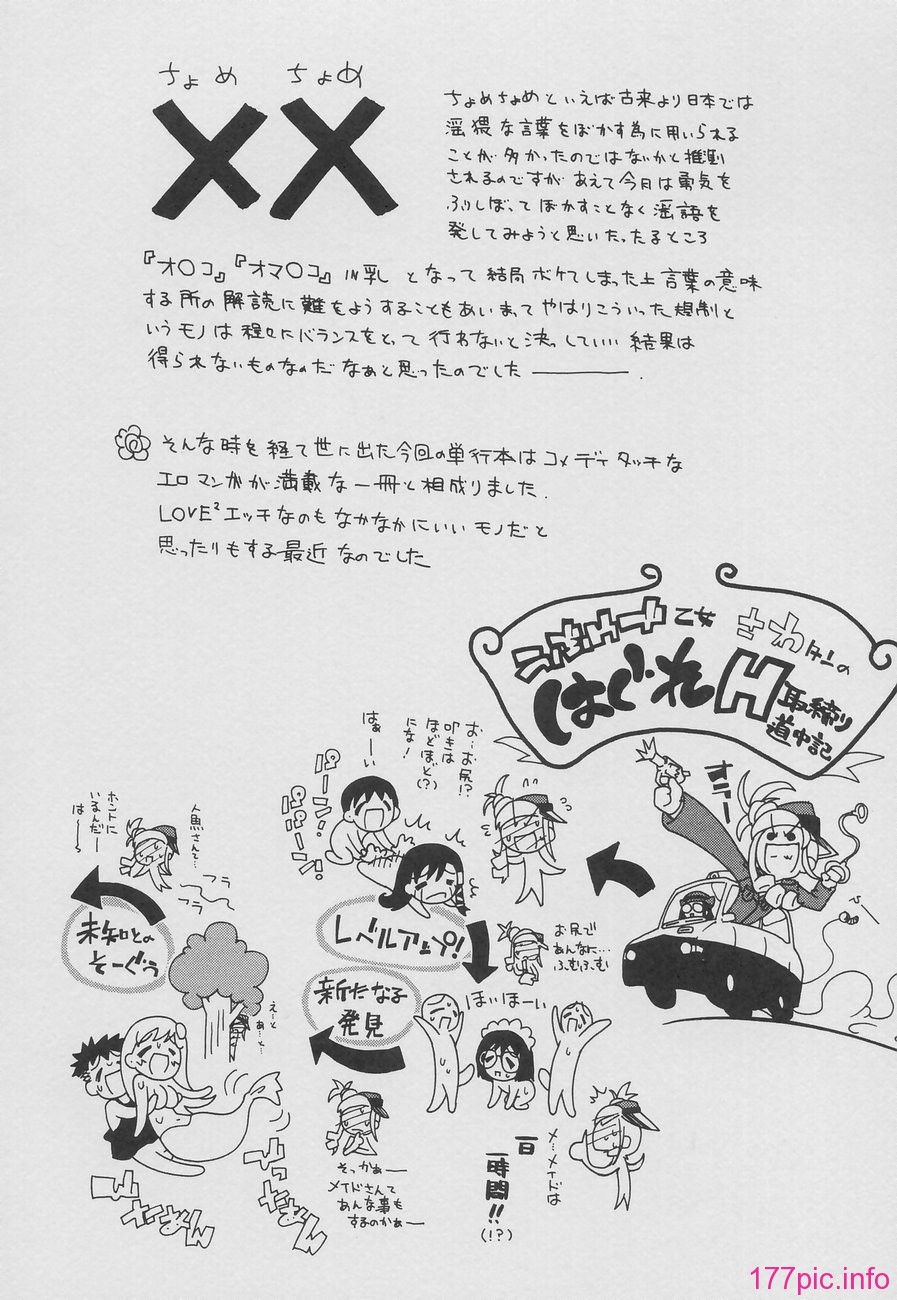 ちょめ ちょめ
××
ちょめちょめといえば古来より日本では
淫猥な言葉をぼかす為に用いられる
ことが多かったのではないかと推測
されるのですが あえて今日は勇気を
ふりしぼって ぼかすことなく淫語を
発してみようと思いたったるところ
『オ○コ』『オマ○コ』IN乳 となって 結局ボケてしまった上 言葉の意味
する所の解読に難をようすることもあいまって やはりこういった規制と
いうモノは程々にバランスをとって行わないと決っしていい結果は
得られないものなのだ なぁと思ったのでした ――― .
そんな時を経て世に出た今回の単行本はコメディタッチな
エロマンガが満載な一冊と相成りました.
LOVE²エッチなのもなかなかにいいモノだと
思ったりもする最近なのでした
乙女 さわタンの
はぐれH取締り
道中記
お…お尻!?
叩きは
ほどほど(?)
にな!
はぁーい
パーン!
パーン!
レベルアップ!
お尻で
あんなに…
ふむふむ
ほいほーい
メ…メイドは
一日
一時間!!
(!?)
新たなる
発見
そっかぁー
メイドさんて
あんな事も
するのかぁー
えーと
ぁ…と…
未知との
そーぐう
人魚さんて…
ホントに
いるんだー
はー
フラ
フラ
177pic.info